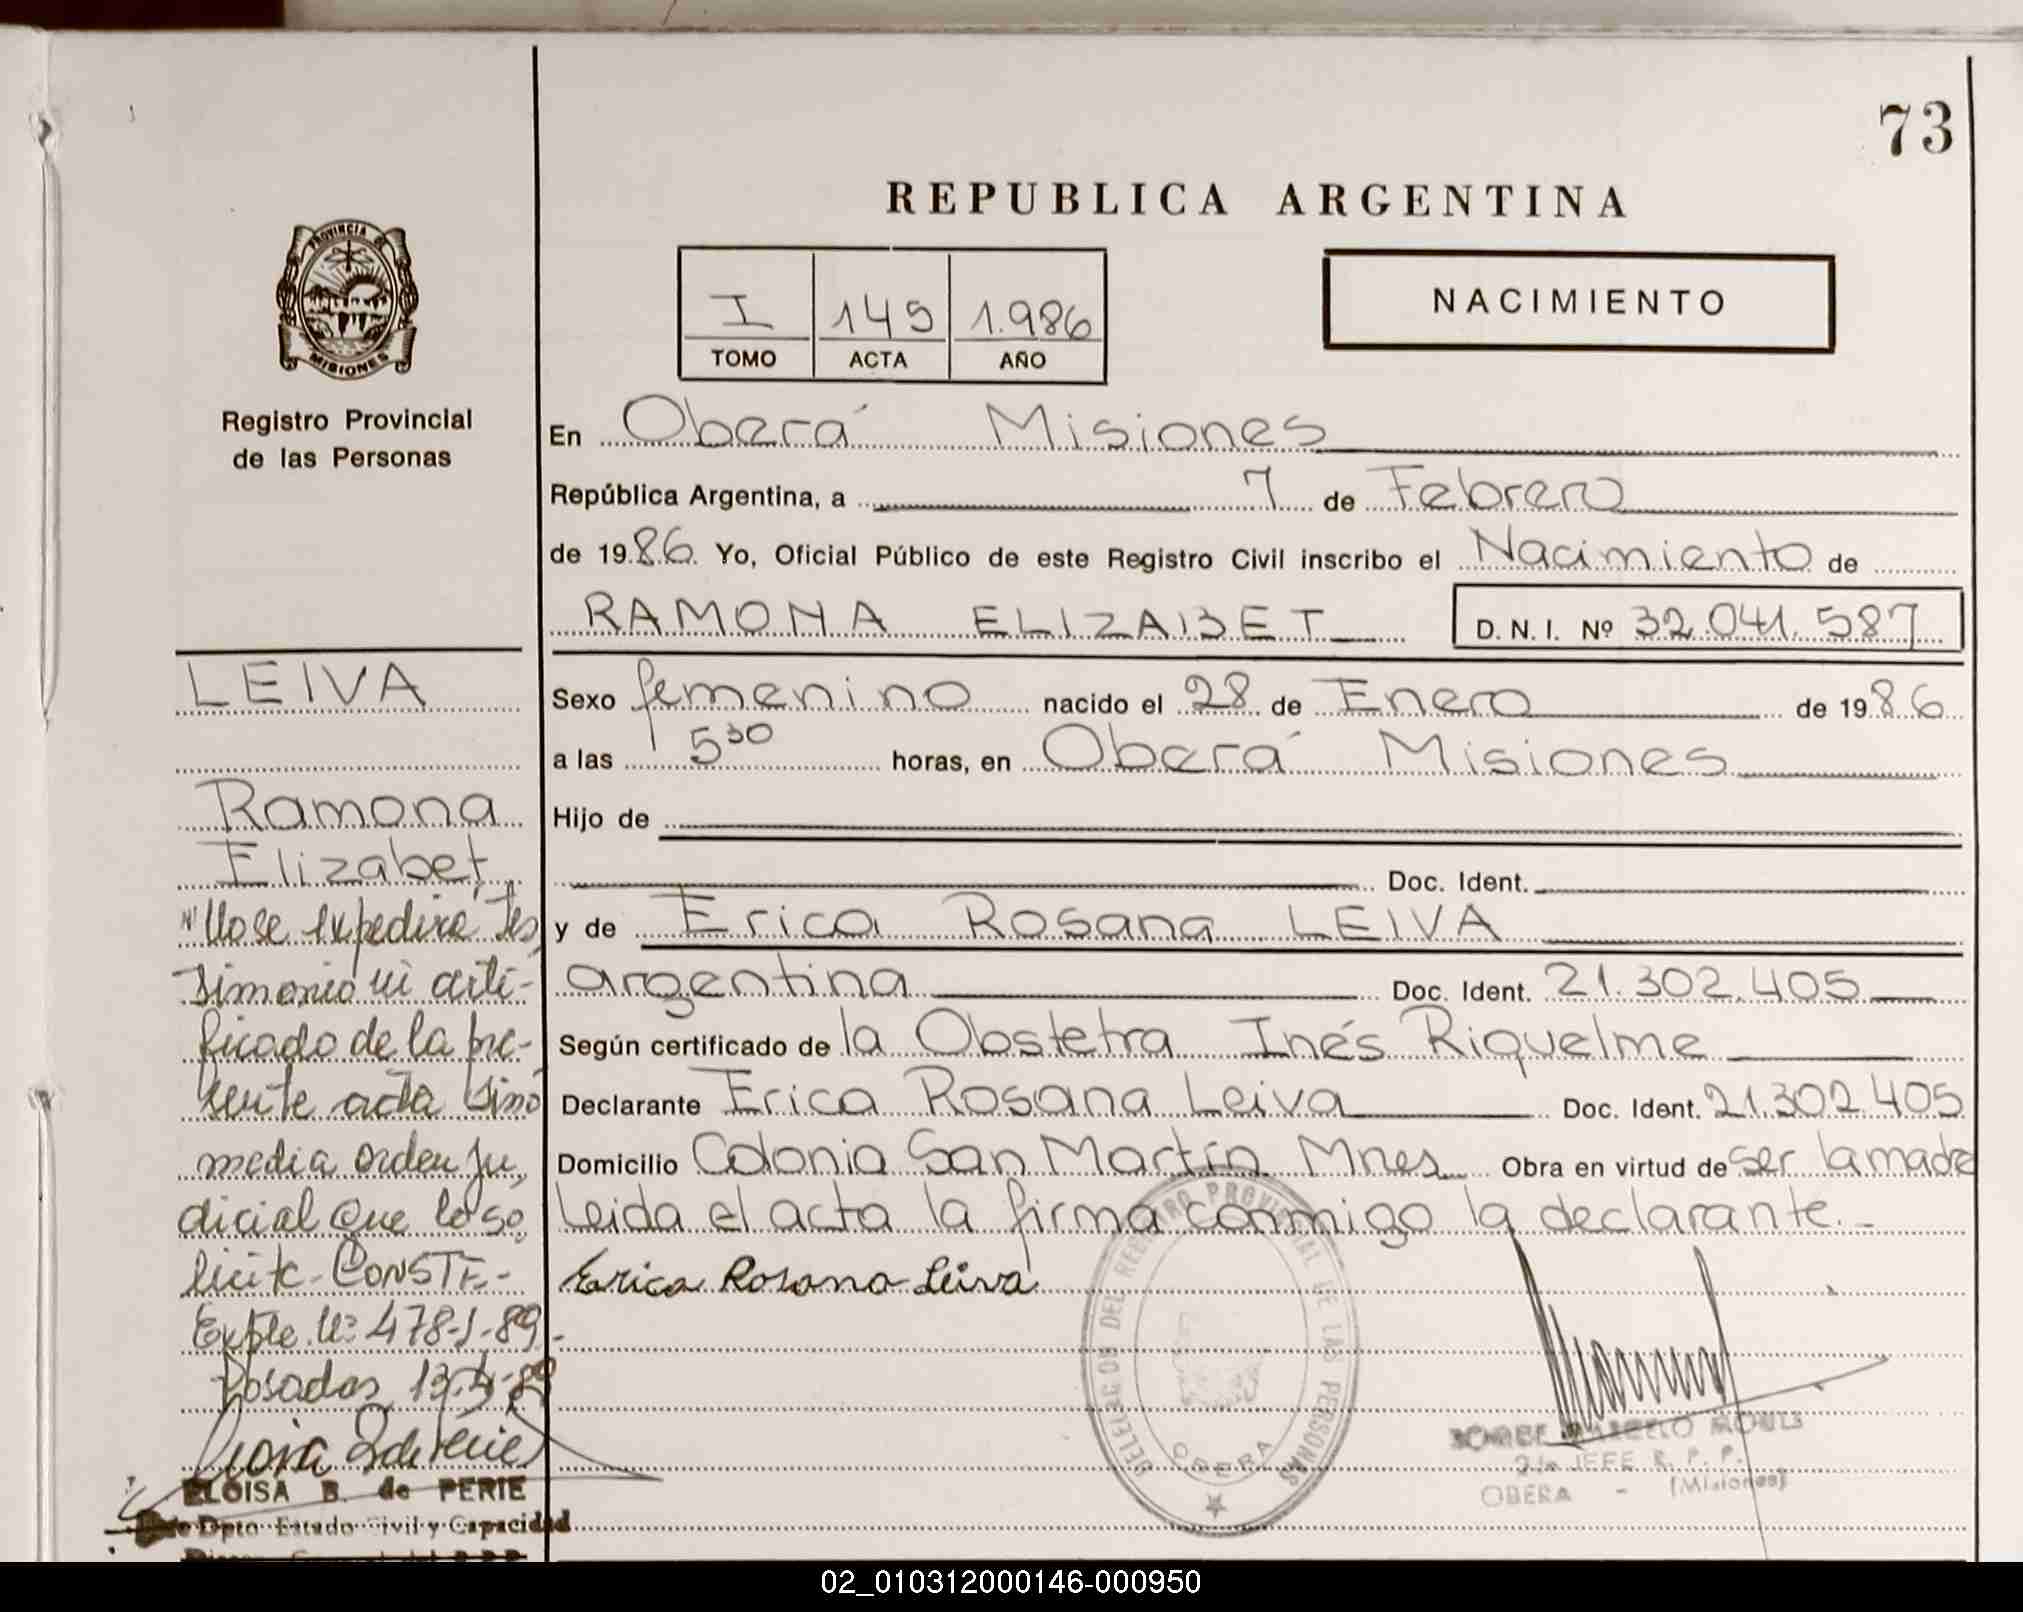 73
REPUBLICA ARGENTINA
PROVINCIA DE
MISIONES
Registro Provincial
de las Personas
I 145 1.986
TOMO ACTA AÑO
NACIMIENTO
En Oberá Misiones
República Argentina, a 7 de Febrero
de 1986 Yo, Oficial Público de este Registro Civil inscribo el Nacimiento de
RAMONA ELIZABET D. N. I. Nº 32.041.587
Sexo femenino nacido el 28 de Enero de 1986
a las 5 30 horas, en Oberá Misiones
Hijo de
Doc. Ident.
y de Erica Rosana LEIVA
argentina Doc. Ident. 21.302.405
Según certificado de la Obstetra Inés Riquelme
Declarante Erica Rosana Leiva Doc. Ident. 21.302.405
Domicilio Colonia San Martín Mnes Obra en virtud de ser la madre
Leida el acta la firma conmigo la declarante.-
Erica Rosana Leiva
LEIVA
Ramona
Elizabet
"No se expedirá Tes
timonio ni certi-
ficado de la pre-
sente acta sino
media orden ju
dicial que lo so
licite - CONSTE.-
Expte. Nº 478-J-89.-
Posadas, 13-4-89
ELOISA B. de PERIE
Dpto Estado Civil y Capacidad
DELEGACION DEL REGISTRO PROVINCIAL DE LAS PERSONAS
OBERA
JEFE R. P. P.
OBERA - (Misiones)
02_010312000146-000950